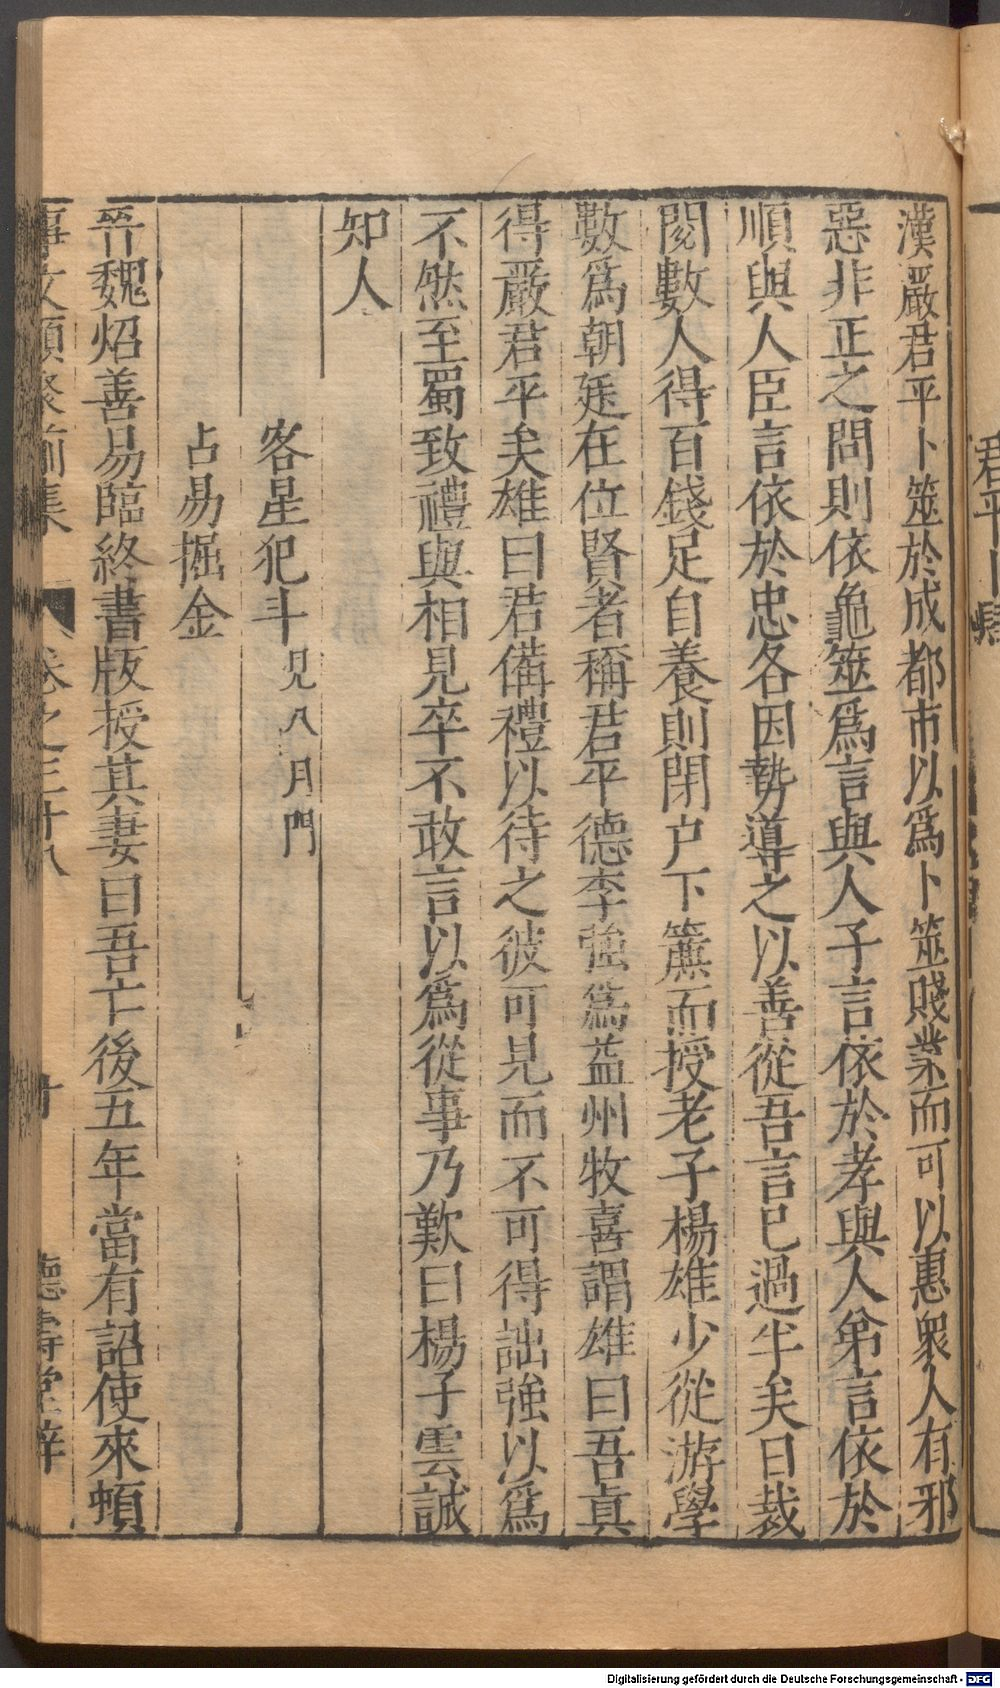 漢嚴君平卜筮於成都市以爲卜筮賤業而可以惠衆人有邪
惡非正之問則依龜筮爲言與人子言依於孝與人弟言依於
順與人臣言依於忠各因勢導之以善從吾言已過半矣日裁
閱數人得百錢足自養則閉户下簾而授老子楊雄少從游學
數爲朝廷在位賢者稱君平德李強爲益州牧喜謂雄曰吾真
得嚴君平矣雄曰君備禮以待之彼可見而不可得詘強以爲
不然至蜀致禮與相見卒不敢言以爲從事乃歎曰楊子雲誠
知人
客星犯斗見八月門
占易掘金
晉魏炤善易臨終書版授其妻曰吾亡後五年當有詔使來頓
事文類聚前集 卷之三十八 德壽堂梓
Digitalisierung gefördert durch die Deutsche Forschungsgemeinschaft - DFG